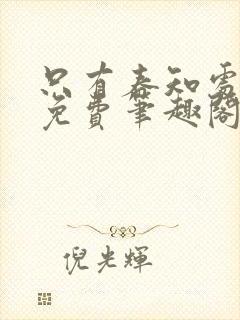 只有春知處
免費筆趣閣
倪光輝